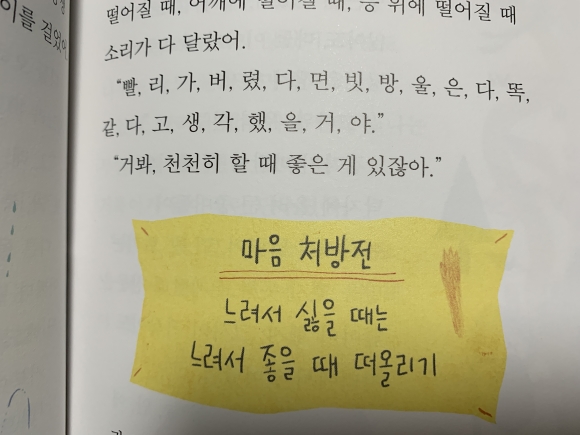 떨어질 때, 어깨에 떨어질 때, 등 위에 떨어질 때
소리가 다 달랐어.
“빨, 리, 가, 버, 렸, 다, 면, 빗, 방, 울, 은, 다, 똑,
같, 다, 고, 생, 각, 했, 을, 거, 야.”
“거봐, 천천히 할 때 좋은 게 있잖아.”
마음 처방전
느려서 싫을 때는
느려서 좋을 때 떠올리기
이를 걸었